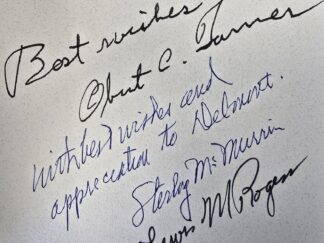 Best wishes
Obert C. Tanner
with best wishes and
appreciation to Delmont.
Sterling McMurrin
Lewis M Rogers